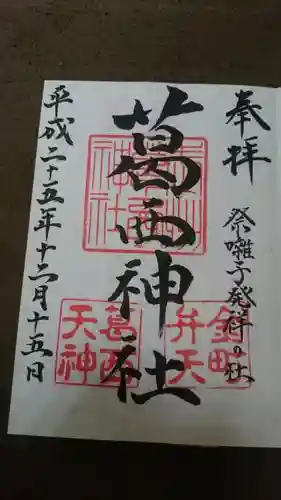 奉拝
祭囃子発祥の社
葛西神社
葛西神社
金町
弁天
葛西
天神
平成二十五年十二月十五日